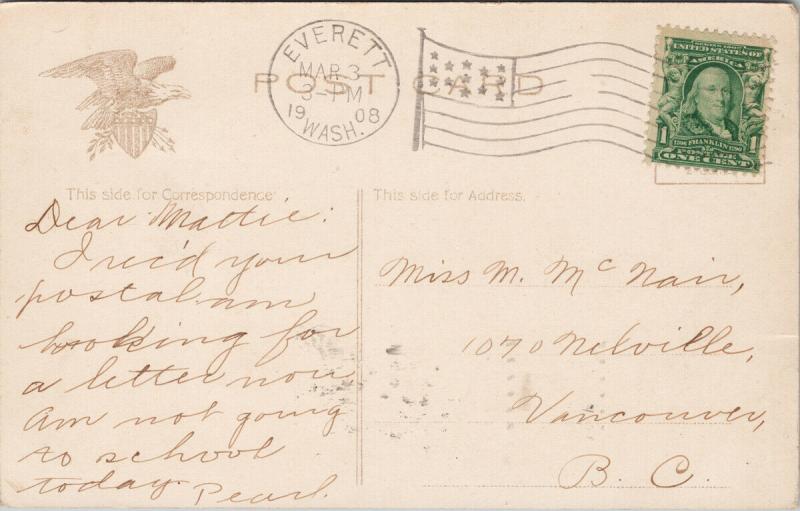 EVERETT
MAR 3
3-PM
1908
WASH.
POST CARD
SERIES 1902
UNITED STATES OF
AMERICA
1 1
1706 FRANKLIN 1790
POSTAGE
ONE CENT
This side for Correspondence
This side for Address.
Dear Mattie:
I rec'd your
postal. am
looking for
a letter now
Am not going
to school
today. Pearl.
Miss M. McNair,
1070 Melville,
Vancouver,
B. C.